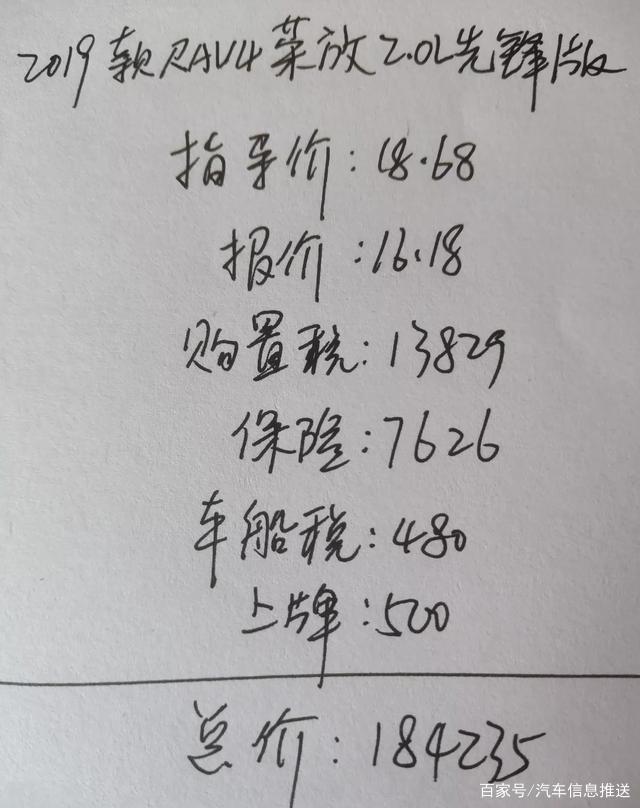 2019款RAV4荣放2.0L先锋版
指导价:18.68
报价:16.18
购置税:13829
保险:7626
车船税:480
上牌:500
总价:184235
百家号/汽车信息推送